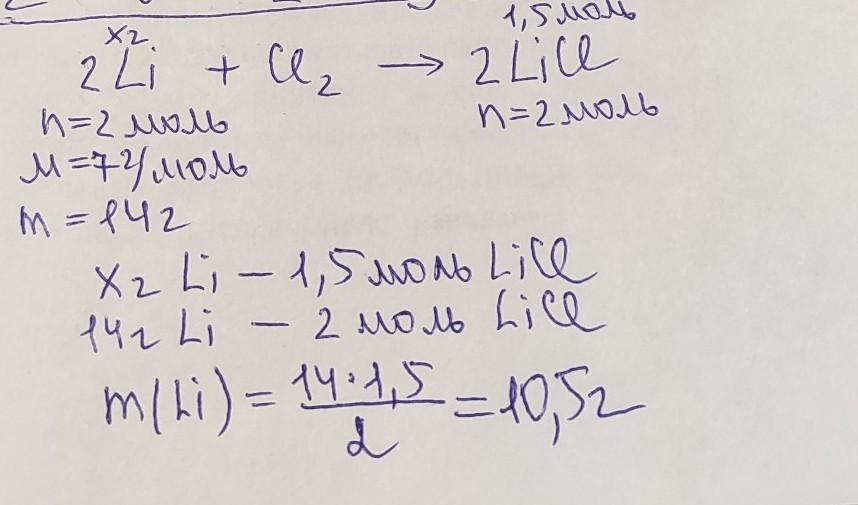 1,5 моль
x г
2Li + Cl₂ → 2LiCl
n=2 моль n=2 моль
M=7 г/моль
m=14 г
x г Li – 1,5 моль LiCl
14 г Li – 2 моль LiCl
m(Li) = 14·1,5 / 2 = 10,5 г